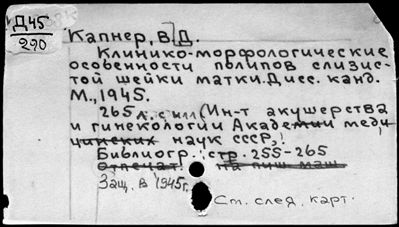 Д45
290
Капнер, В.Д.
Клинико-морфологические
особенности полипов слизис-
той шейки матки. Дисс. канд.
М., 1945.
265 л. с илл (Ин-т акушерства
и гинекологии Академии меди
цинских наук СССР).
Библиогр.: стр. 255-265
отпечат. на пиш маш
Защ. в 1945г.
См. след. карт.